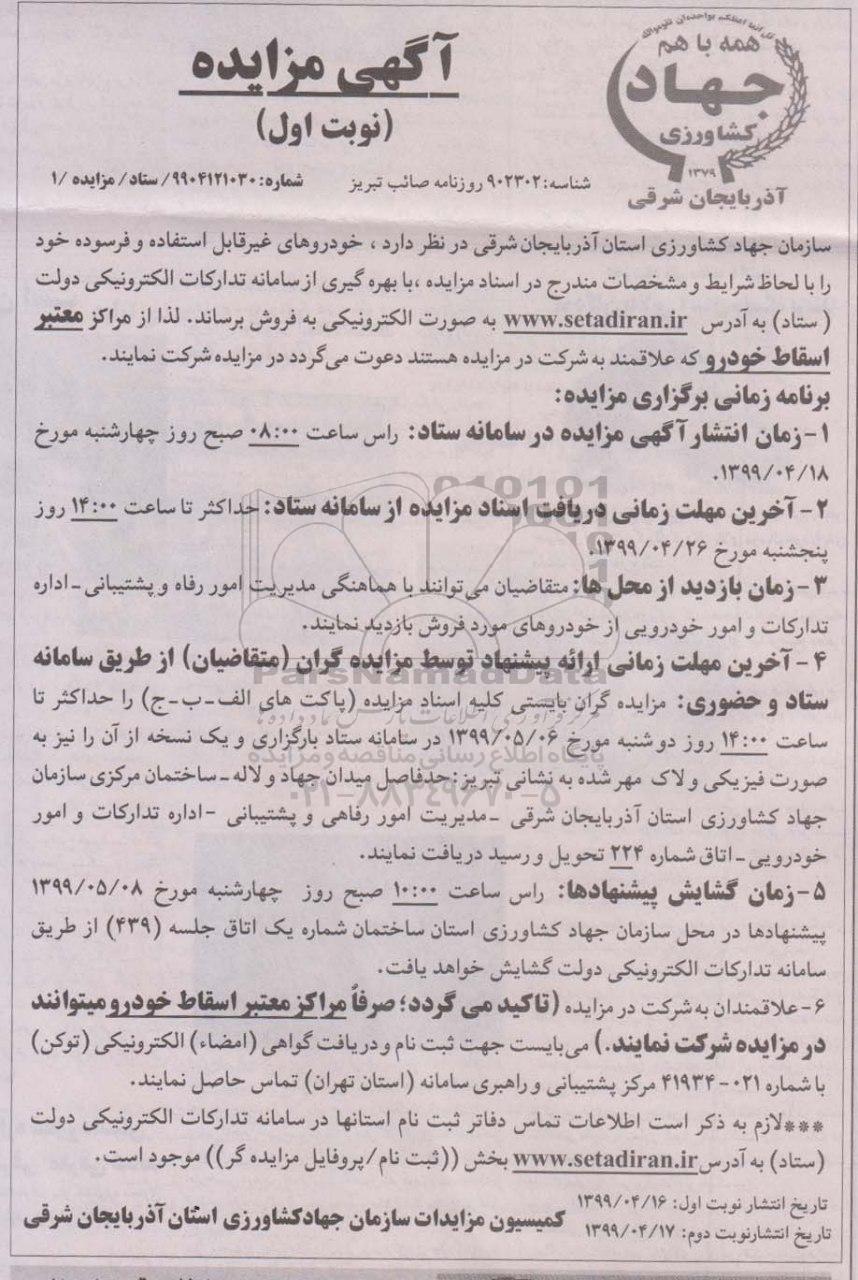 همه با هم
جهاد
کشاورزی
۱۳۷۹
آذربایجان شرقی
آگهی مزایده
(نوبت اول)
شناسه: ۹۰۲۳۰۲ روزنامه صائب تبریز
شماره: ۹۹۰۴۱۲۱۰۳۰/ ستاد/ مزایده /۱
سازمان جهاد کشاورزی استان آذربایجان شرقی در نظر دارد ، خودروهای غیرقابل استفاده و فرسوده خود
را با لحاظ شرایط و مشخصات مندرج در اسناد مزایده ،با بهره گیری از سامانه تدارکات الکترونیکی دولت
( ستاد) به آدرس www.setadiran.ir به صورت الکترونیکی به فروش برساند. لذا از مراکز معتبر
اسقاط خودرو که علاقمند به شرکت در مزایده هستند دعوت می‌گردد در مزایده شرکت نمایند.
برنامه زمانی برگزاری مزایده:
۱- زمان انتشار آگهی مزایده در سامانه ستاد: راس ساعت ۰۸:۰۰ صبح روز چهارشنبه مورخ
۱۳۹۹/۰۴/۱۸.
۲- آخرین مهلت زمانی دریافت اسناد مزایده از سامانه ستاد: حداکثر تا ساعت ۱۴:۰۰ روز
پنجشنبه مورخ ۱۳۹۹/۰۴/۲۶.
۳- زمان بازدید از محل ها: متقاضیان می‌توانند با هماهنگی مدیریت امور رفاه و پشتیبانی ـ اداره
تدارکات و امور خودرویی از خودروهای مورد فروش بازدید نمایند.
۴- آخرین مهلت زمانی ارائه پیشنهاد توسط مزایده گران (متقاضیان) از طریق سامانه
ستاد و حضوری: مزایده گران بایستی کلیه اسناد مزایده (پاکت های الف-ب-ج) را حداکثر تا
ساعت ۱۴:۰۰ روز دوشنبه مورخ ۱۳۹۹/۰۵/۰۶ در سامانه ستاد بارگزاری و یک نسخه از آن را نیز به
صورت فیزیکی و لاک مهر شده به نشانی تبریز: حدفاصل میدان جهاد و لاله ـ ساختمان مرکزی سازمان
جهاد کشاورزی استان آذربایجان شرقی ـ مدیریت امور رفاهی و پشتیبانی - اداره تدارکات و امور
خودرویی ـ اتاق شماره ۲۲۴ تحویل و رسید دریافت نمایند.
۵- زمان گشایش پیشنهادها: راس ساعت ۱۰:۰۰ صبح روز چهارشنبه مورخ ۱۳۹۹/۰۵/۰۸
پیشنهادها در محل سازمان جهاد کشاورزی استان ساختمان شماره یک اتاق جلسه (۴۳۹) از طریق
سامانه تدارکات الکترونیکی دولت گشایش خواهد یافت.
۶- علاقمندان به شرکت در مزایده (تاکید می گردد؛ صرفاً مراکز معتبر اسقاط خودرو میتوانند
در مزایده شرکت نمایند.) می‌بایست جهت ثبت نام و دریافت گواهی (امضاء) الکترونیکی (توکن)
با شماره ۰۲۱-۴۱۹۳۴ مرکز پشتیبانی و راهبری سامانه (استان تهران) تماس حاصل نمایند.
***لازم به ذکر است اطلاعات تماس دفاتر ثبت نام استانها در سامانه تدارکات الکترونیکی دولت
(ستاد) به آدرس www.setadiran.ir بخش ((ثبت نام/پروفایل مزایده گر)) موجود است.
تاریخ انتشار نوبت اول: ۱۳۹۹/۰۴/۱۶
تاریخ انتشارنوبت دوم: ۱۳۹۹/۰۴/۱۷
کمیسیون مزایدات سازمان جهادکشاورزی استان آذربایجان شرقی
ParsNamadData
پایگاه اطلاع رسانی مناقصه و مزایده
۰۲۱-۸۸۳۴۹۶۷۰-۵